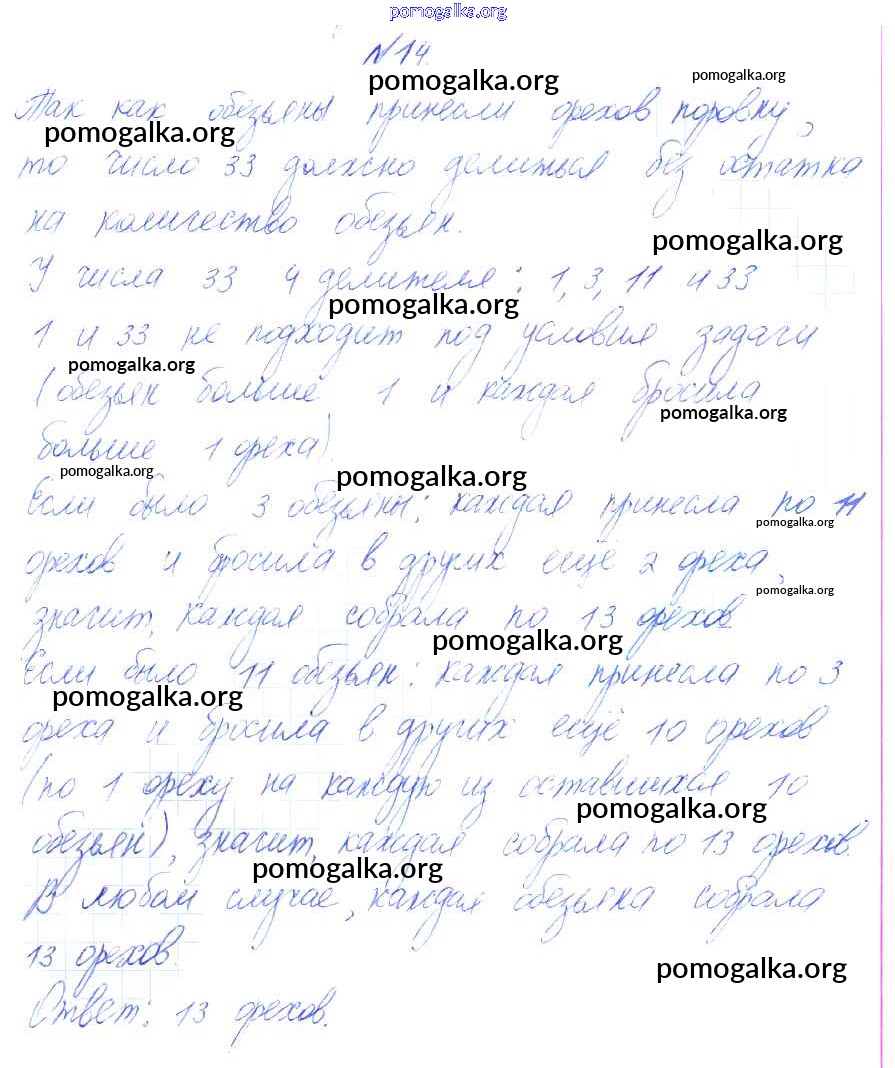 pomogalka.org
N14.
pomogalka.org pomogalka.org
Так как обезьяны принесли орехов поровну,
pomogalka.org
то число 33 должно делиться без остатка
на количество обезьян.
pomogalka.org
У числа 33 4 делителя: 1, 3, 11 и 33
pomogalka.org
1 и 33 не подходит под условия задачи
pomogalka.org
(обезьян больше 1 и каждая бросила
pomogalka.org
больше 1 ореха).
pomogalka.org pomogalka.org
Если было 3 обезьяны: каждая принесла по 11
pomogalka.org
орехов и бросила в других ещё 2 ореха,
pomogalka.org
значит, каждая собрала по 13 орехов.
pomogalka.org
Если было 11 обезьян: каждая принесла по 3
pomogalka.org
ореха и бросила в других ещё 10 орехов
(по 1 ореху на каждую из оставшихся 10
pomogalka.org
обезьян), значит, каждая собрала по 13 орехов.
pomogalka.org
В любом случае, каждая обезьяна собрала
13 орехов.
pomogalka.org
Ответ: 13 орехов.